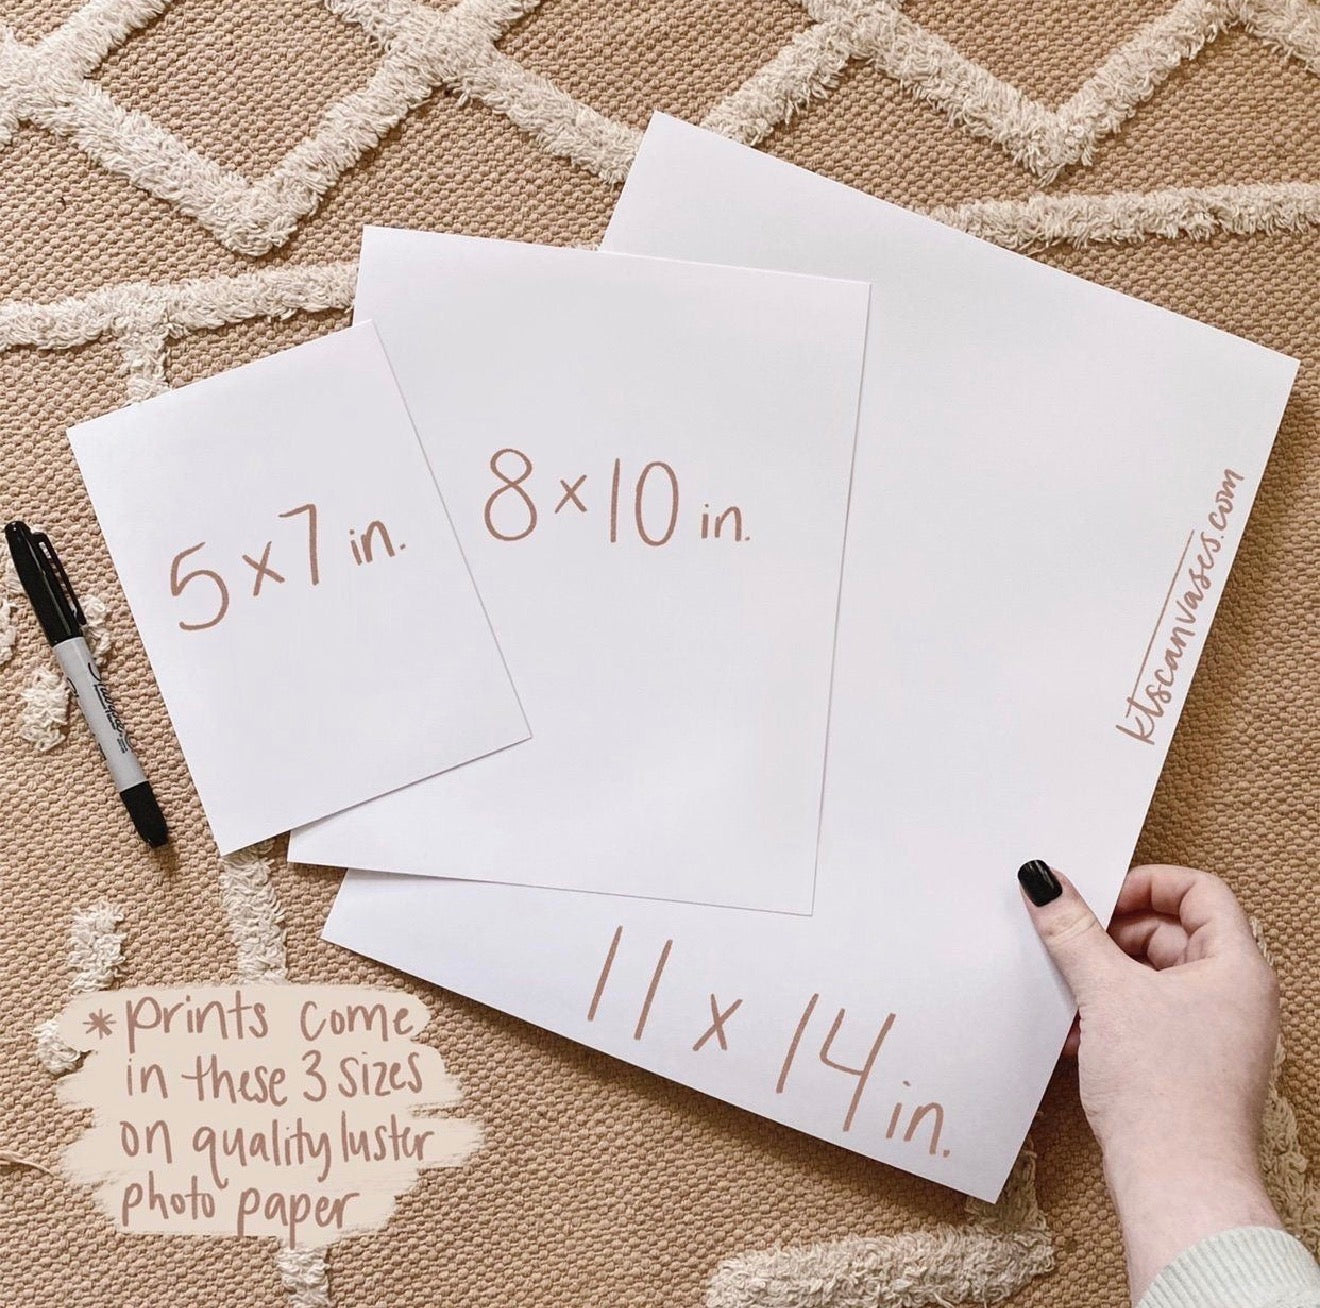 5x7 in.
8x10 in.
11 x 14 in.
ktscanvases.com
Sharpie
*prints come
in these 3 sizes
on quality luster
photo paper